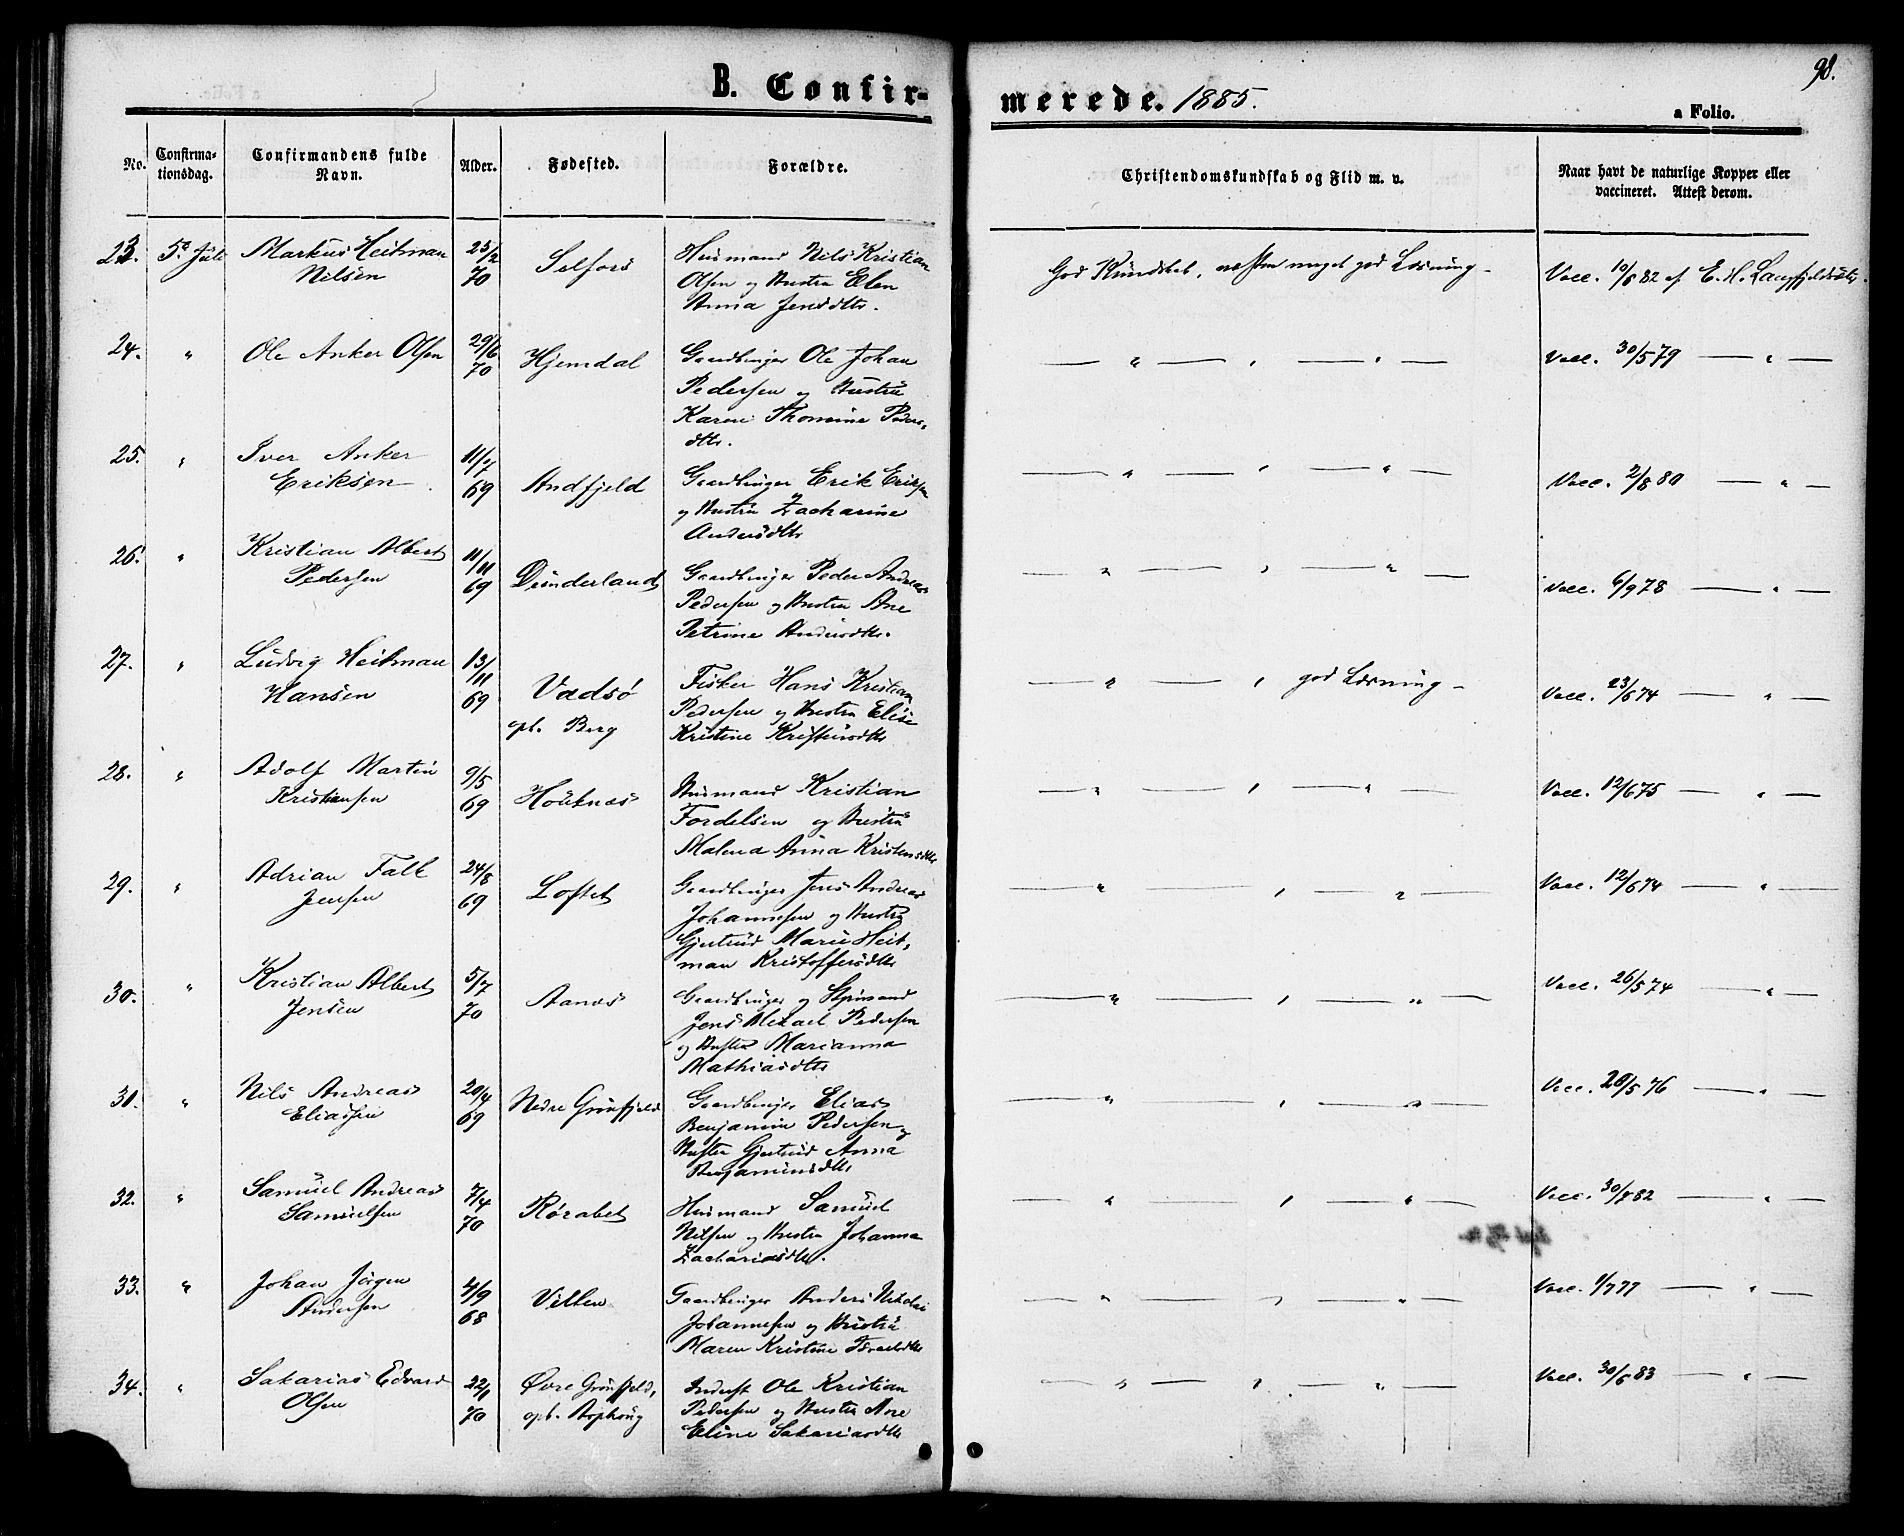 98.
B. Confir-
merede. 1885.
a Folio.
No.
Confirma-
tionsdag.
Confirmandens fulde
Navn.
Alder.
Fødested.
Forældre.
Christendomskundskab og Flid m. v.
Naar havt de naturlige Kopper eller
vaccineret. Attest derom.
23. 5te Juli Markus Heitman 25/2 Selfors Husmand Nils Kristian God Kundskab, næsten meget god Læsning - Vacc. 10/6 82 af E. H. Langfjeldsæter.
Nilsen 70 Olsen og Hustru Elen
Anna Jensdtr.
24. " Ole Anker Olsen 29/6 Hjemdal Gaardbruger Ole Johan — " — , — " — Vacc. 30/5 79 — " —
70 Pedersen og Hustru
Karen Thomine Peders-
dtr.
25. " Iver Anker 11/7 Andfjeld Gaardbruger Erik Eriksen — " — , — " — Vacc. 2/8 80 — " —
Eriksen 69 og Hustru Zacharine
Andersdtr
26. " Kristian Albert 11/11 Dunderland Gaardbruger Peder Andreas — " — , — " — Vacc. 6/9 78 — " —
Pedersen 69 Pedersen og Hustru Ane
Petrine Andersdtr.
27. " Ludvig Heitman 13/11 Vadsø Fisker Hans Kristian — " — , god Læsning - Vacc. 23/6 74 — " —
Hansen 69 opt. Berg Pedersen og Hustru Elise
Kristine Kristensdtr
28. " Adolf Martin 9/5 Houknes Husmand Kristian — " — , — " — Vacc. 12/6 75 — " —
Kristiansen 69 Fordelsen og Hustru
Malena Anna Kristensdtr
29. " Adrian Falk 24/8 Loftet Gaardbruger Jens Andreas — " — , — " — Vacc. 12/6 74 — " —
Jensen 69 Johannesen og Hustru
Gjertrud Marie Heit-
man Kristoffersdtr
30. " Kristian Albert 5/7 Aanes Gaardbruger og — " — , — " — Vacc. 26/5 74 — " —
Jensen 70 Jens Mikael Pedersen
og Hustru Marianna
Mathiasdtr
31. " Nils Andreas 20/4 Nedre Grønfjeld Gaardbruger Elias — " — , — " — Vacc. 20/5 76 — " —
Eliassen 69 Benjamin Pedersen og
Hustru Gjertrud Anna
Benjaminsdtr
32. " Samuel Andreas 7/4 Rørabet Husmand Samuel — " — , — " — Vacc. 30/8 82 — " —
Samuelsen 70 Nilsen og Hustru Johanna
Zachariasdtr.
33. " Johan Jørgen 4/9 Gaardbruger Anders Nikolai — " — , — " — Vacc. 1/7 77 — " —
Andersen 68 Johannesen og Hustru
Maren Kristine Israelsdtr
34. " Sakarias Edvard 22/1 Øvre Grønfjeld, Inderst Ole Kristian — " — , — " — Vacc. 30/6 83 — " —
Olsen 70 opt. Pedersen og Hustru Ane
Eline Sakariasdtr